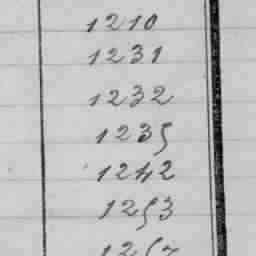 1210
1231
1232
1235
1242
1253